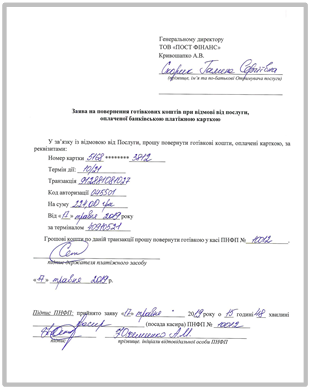 Генеральному директору
ТОВ «ПОСТ ФІНАНС»
Кривошапко А.В.
Скорик Галина Сергіївна
(прізвище, ім'я та по-батькові Отримувача послуги)
Заява на повернення готівкових коштів при відмові від послуги,
оплаченої банківською платіжною карткою
У зв'язку із відмовою від Послуги, прошу повернути готівкові кошти, оплачені карткою, за
реквізитами:
Номер картки 5168 ******** 3812
Термін дії: 10/21
Транзакція
Код авторизації 045501
На суму грн
Від «17» травня 2019 року
за терміналом
Грошові кошти по даній транзакції прошу повернути готівкою у касі ПНФП № 10012.
підпис держателя платіжного засобу
«17» травня 2019 р.
Підпис ПНФП: прийнято заяву «17» травня 2019 року о 15 годині 48 хвилині
касир (посада касира) ПНФП № 10012
А.М.
підпис прізвище, ініціали відповідальної особи ПНФП